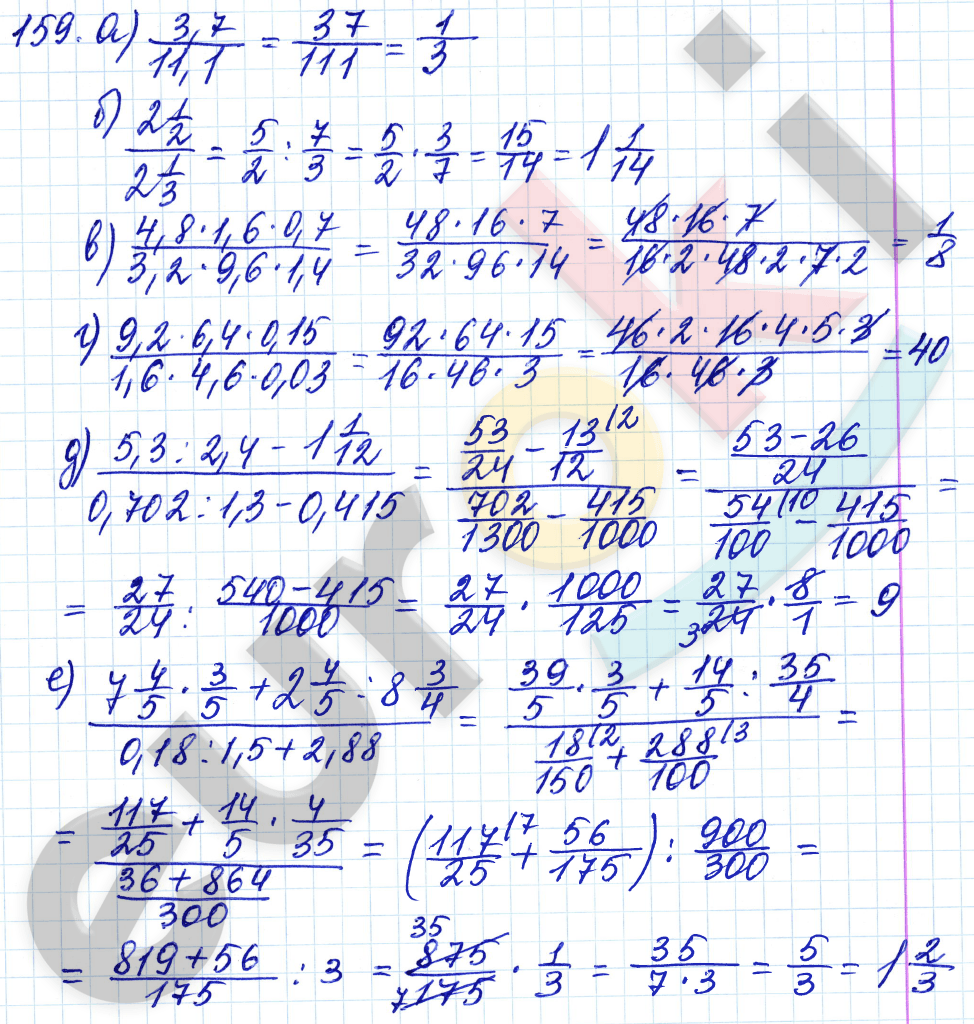 159. а) 3,7/11,1 = 37/111 = 1/3
б) 2 1/2 / 2 1/3 = 5/2 : 7/3 = 5/2 · 3/7 = 15/14 = 1 1/14
в) 4,8·1,6·0,7 / 3,2·9,6·1,4 = 48·16·7 / 32·96·14 = 48·16·7 / 16·2·48·2·7·2 = 1/8
г) 9,2·6,4·0,15 / 1,6·4,6·0,03 = 92·64·15 / 16·46·3 = 46·2·16·4·5·3 / 16·46·3 = 40
д) 5,3:2,4 − 1 1/12 / 0,702:1,3−0,415 = 53/24 − 13/12 |2 / 702/1300 − 415/1000 = 53−26/24 / 54/100 |10 − 415/1000 =
= 27/24 : 540−415/1000 = 27/24 · 1000/125 = 27/3 24 · 8/1 = 9
е) 7 4/5 · 3/5 + 2 4/5 : 8 3/4 / 0,18:1,5+2,88 = 39/5 · 3/5 + 14/5 : 35/4 / 18/150 |2 + 288/100 |3 =
= 117/25 + 14/5 · 4/35 / 36+864/300 = (117/25 |7 + 56/175) : 900/300 =
= 819+56/175 : 3 = 35 875/7 175 · 1/3 = 35/7·3 = 5/3 = 1 2/3
euroki